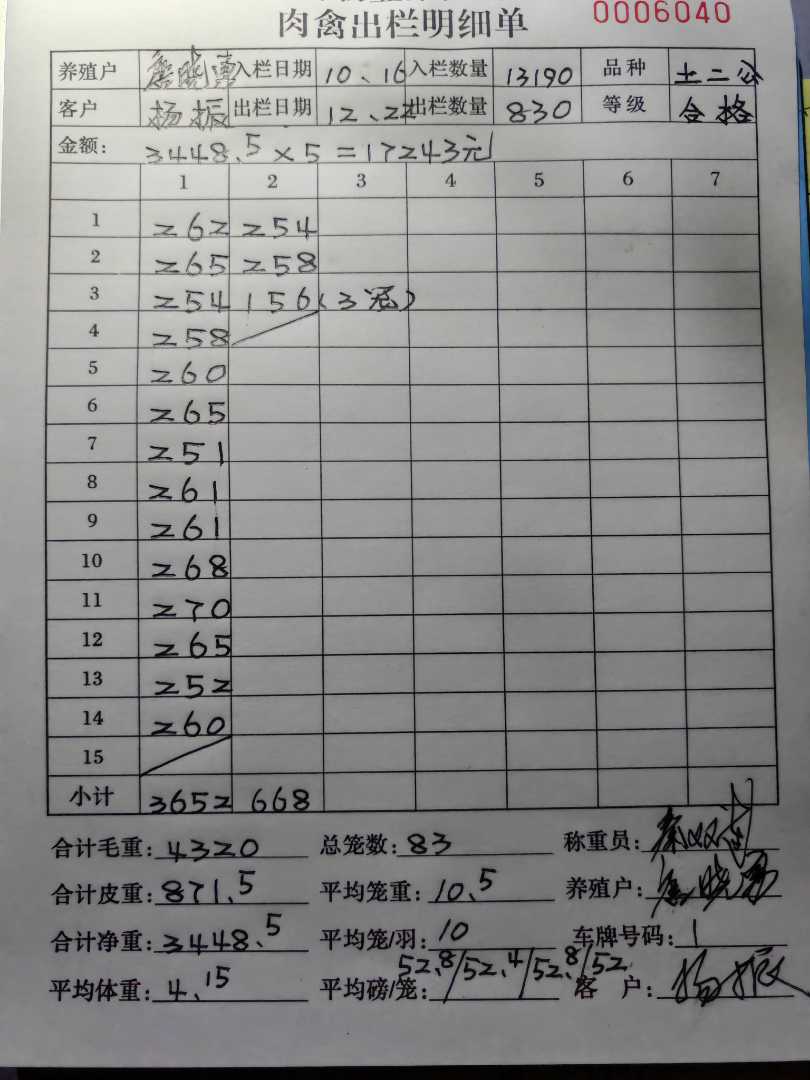 肉禽出栏明细单 0006040
养殖户 入栏日期 10.16 入栏数量 13190 品种 土二公
客户 杨振 出栏日期 12.22 出栏数量 830 等级 合格
金额: 3448.5×5=17243元
1 2 3 4 5 6 7
1 262 254
2 265 258
3 254 156(3冠)
4 258
5 260
6 265
7 251
8 261
9 261
10 268
11 270
12 265
13 252
14 260
15
小计 3652 668
合计毛重: 4320 总笼数: 83 称重员:
合计皮重: 871.5 平均笼重: 10.5 养殖户:
合计净重: 3448.5 平均笼/羽: 10 车牌号码: 1
平均体重: 4.15 平均磅/笼: 52.8/52.4/52.8/52 客 户: 杨振